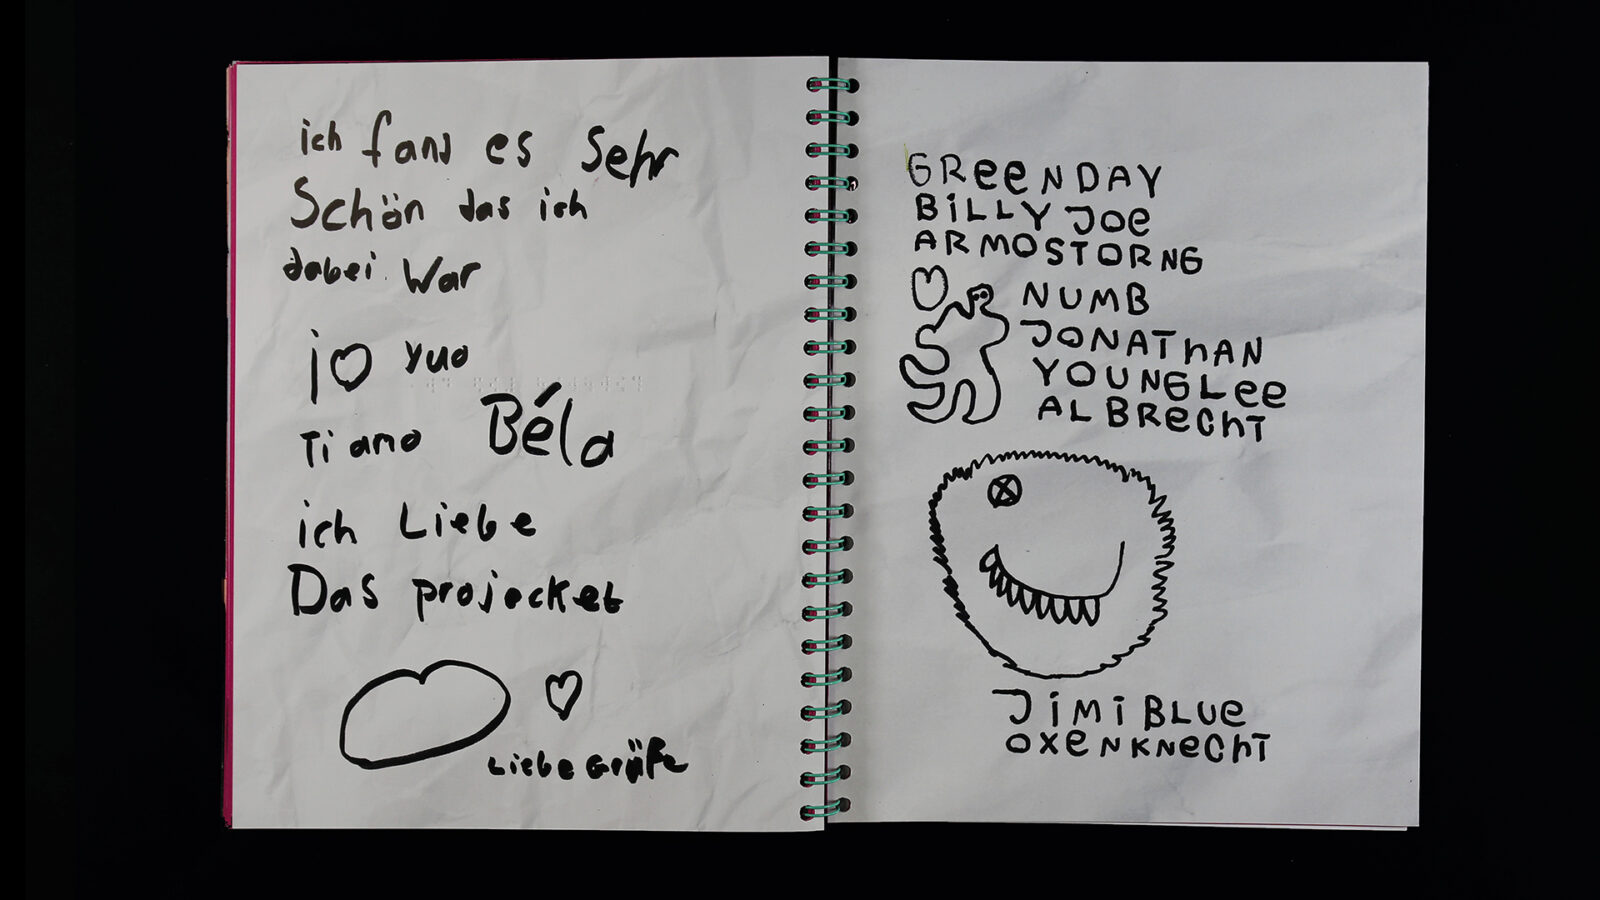 ich fand es sehr
Schön das ich
dabei war
i ♡ yuo
Ti amo Béla
ich Liebe
Das projecket
Liebe Grüße
GReeNDAY
BiLLY JOe
ARMOSTORNG
NUMB
JONAThAN
YOUNGLee
ALBReChT
JiMi BLUe
OXeNKNeChT